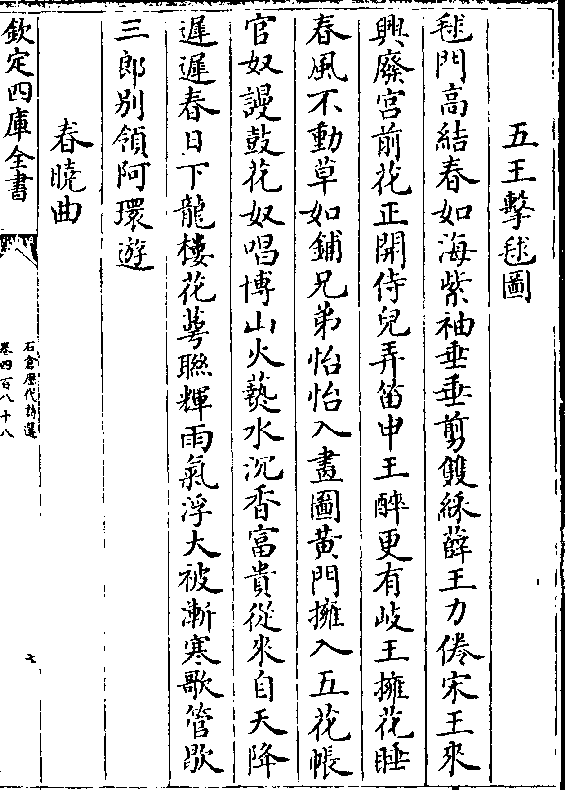 五王擊毬圖
毬門高結春如海紫袖垂垂剪雙綵薛王力倦宋王來
興廢宮前花正開侍兒弄笛申王醉更有岐王擁花睡
春風不動草如鋪兄弟怡怡入畫圖黃門擁入五花帳
官奴謾鼓花奴唱博山火爇水沉香富貴從來自天降
遲遲春日下龍樓花萼聯輝雨氣浮大被漸寒歌管歇
三郎別領阿環遊
春曉曲
欽定四庫全書
石倉歷代詩選
卷四百八十八
七